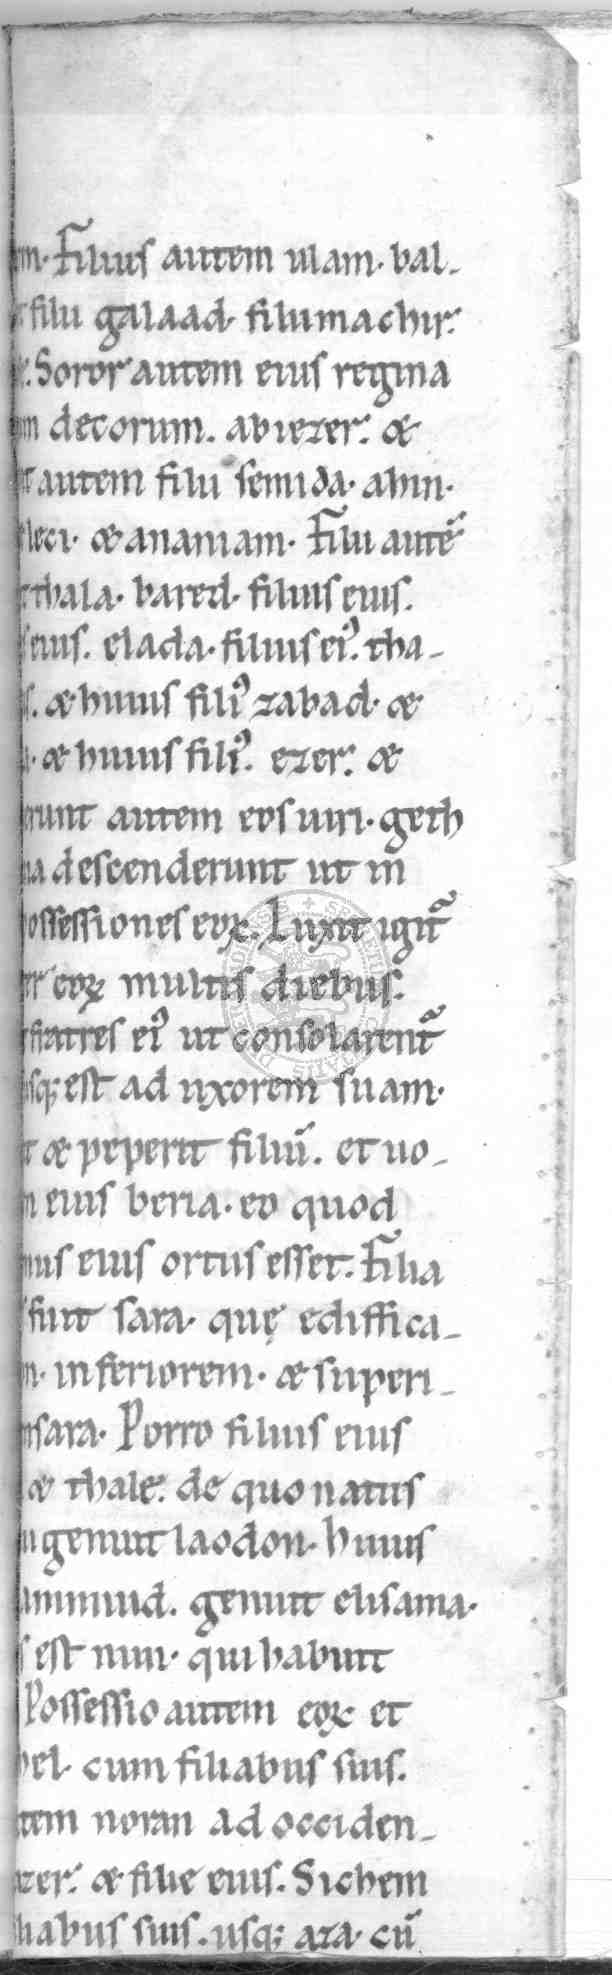 m. Filius autem ulam. bal-
filii galaad. filii machir.
Soror autem eius regina
m decorum. abiezer. &
t autem filii semida. ahin.
leci. & aniam. Filii autē
thala. bared. filius eius.
eius. elada. filius ei᾽. tha-
s. & huius fili᾽ zabad. &
& huius fili᾽. ezer. &
erunt autem eos uiri. geth
na descenderunt ut in
possessiones eoꝝ. Luxit igit᷑
er eoꝝ multis diebus.
fratres ei᾽ ut consolarent᷑
usq; est ad uxorem suam.
t & peperit filiū. et uo-
m eius beria. eo quod
mus eius ortus esset. Filia
fuit sara. quę ediffica-
n. inferiorem. & superi-
nsara. Porro filius eius
& thale. de quo natus
genuit laodon. huius
ammiud. genuit elisama.
s est nun. qui habuit
Possessio autem eoꝝ et
hel. cum filiabus suis.
tem noran ad occiden-
azer. & filie eius. Sichem
liabus suis. usq; aza. cū